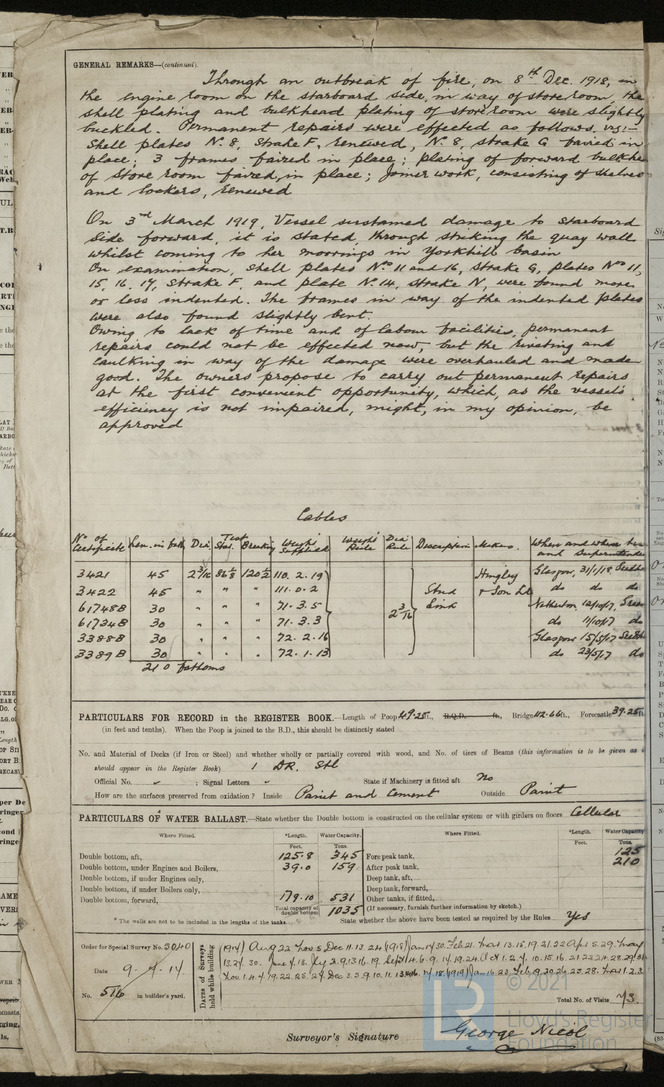 GENERAL REMARKS—(continued).
Through an outbreak of fire, on 8th Dec. 1918, in
the engine room on the starboard side, in way of storeroom the
shell plating and bulkhead plating of storeroom were slightly
buckled. Permanent repairs were effected as follows, viz:—
Shell plates No. 8, Strake F, renewed, No. 8, strake G faired in
place; 3 frames faired in place; plating of forward bulkhe
of store room faired, in place; joiner work, consisting of shelves
and lockers, renewed
On 3rd March 1919, Vessel sustained damage to Starboard
Side forward, it is stated, through striking the quay wall
whilst coming to her moorings in Yorkhill basin
On examination, shell plates Nos 11 and 16, strake G, plates Nos 11,
15, 16, 17, strake F, and plate No. 14, strake N, were found more
or less indented. The frames in way of the indented plates
were also found slightly bent.
Owing to lack of time and of labour facilities, permanent
repairs could not be effected now, but the riveting and
caulking in way of the damage were overhauled and made
good. The owners propose to carry out permanent repairs
at the first convenient opportunity, which, as the vessel's
efficiency is not impaired, might, in my opinion, be
approved
Cables
No. of Certificate Len. in fath Dia. Test Stat. Breaking Weight Supplied Weight Rule Dia Rule Description Makers Where and when and Superintende
3421 45 2 3/16 86 1/8 120 1/2 110. 2. 19 Hingley Glasgow, 31/1/18
3422 45 " " " 111. 0. 2 Stud & Son Ld do do do
61748B 30 " " " 71. 3. 5 2 3/16 Link Netherton, 12/10/17,
61734B 30 " " " 71. 3. 3 do 11/10/17 do
3388B 30 " " " 72. 2. 16 Glasgow 15/5/17
3389B 30 " " " 72. 1. 13 do 23/5/17 do
210 fathoms
PARTICULARS FOR RECORD in the REGISTER BOOK.—Length of Poop 49.25 ft., R.Q.D. ft., Bridge 112.66 ft., Forecastle 39.25 ft.
(in feet and tenths). When the Poop is joined to the B.D., this should be distinctly stated
No. and Material of Decks (if Iron or Steel) and whether wholly or partially covered with wood, and No. of tiers of Beams (this information is to be given as i
should appear in the Register Book) 1 DK. Stl
Official No. " ; Signal Letters " State if Machinery is fitted aft No
How are the surfaces preserved from oxidation? Inside Paint and Cement Outside Paint
PARTICULARS OF WATER BALLAST.—State whether the Double bottom is constructed on the cellular system or with girders on floors Cellular
Where Fitted. *Length. Water Capacity. Where Fitted. *Length. Water Capacity
Feet. Tons. Feet. Tons.
Double bottom, aft, 125.8 345 Fore peak tank, 125
Double bottom, under Engines and Boilers, 39.0 159 After peak tank, 210
Double bottom, if under Engines only, Deep tank, aft,
Double bottom, if under Boilers only, Deep tank, forward,
Double bottom, forward, 179.10 531 Other tanks, if fitted,
Total capacity of double bottom 1035 (If necessary, furnish further information by sketch.)
* The wells are not to be included in the lengths of the tanks. State whether the above have been tested as required by the Rules Yes
Order for Special Survey No. 3040
Date 9-4-17
No. 516 in builder's yard.
Dates of Surveys held while building
Total No. of Visits 73
Surveyor's Signature George Nicol
© 2021
Lloyd's Register
Foundation